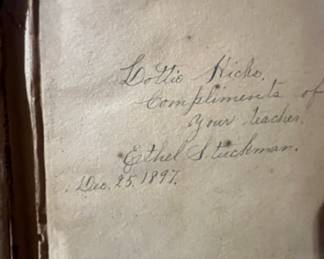 Lottie Hicks.
Compliments of
your teacher.
Ethel Stuckman.
Dec. 25, 1897.